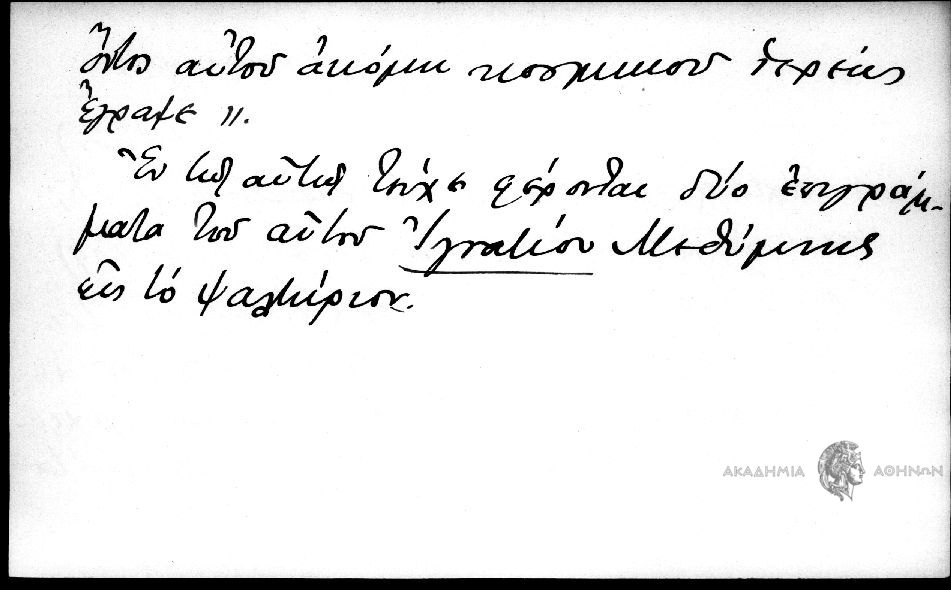 ὄντος αὐτοῦ ἀκόμη κοσμικοῦ ἱερέως
ἔγραψε».
Ἐν τῷ αὐτῷ τεύχει φέρονται δύο ἐπιγράμ-
ματα τοῦ αὐτοῦ Ἰγνατίου Μεθύμνης
εἰς τὸ ψαλτήριον.
ΑΚΑΔΗΜΙΑ ΑΘΗΝΩΝ